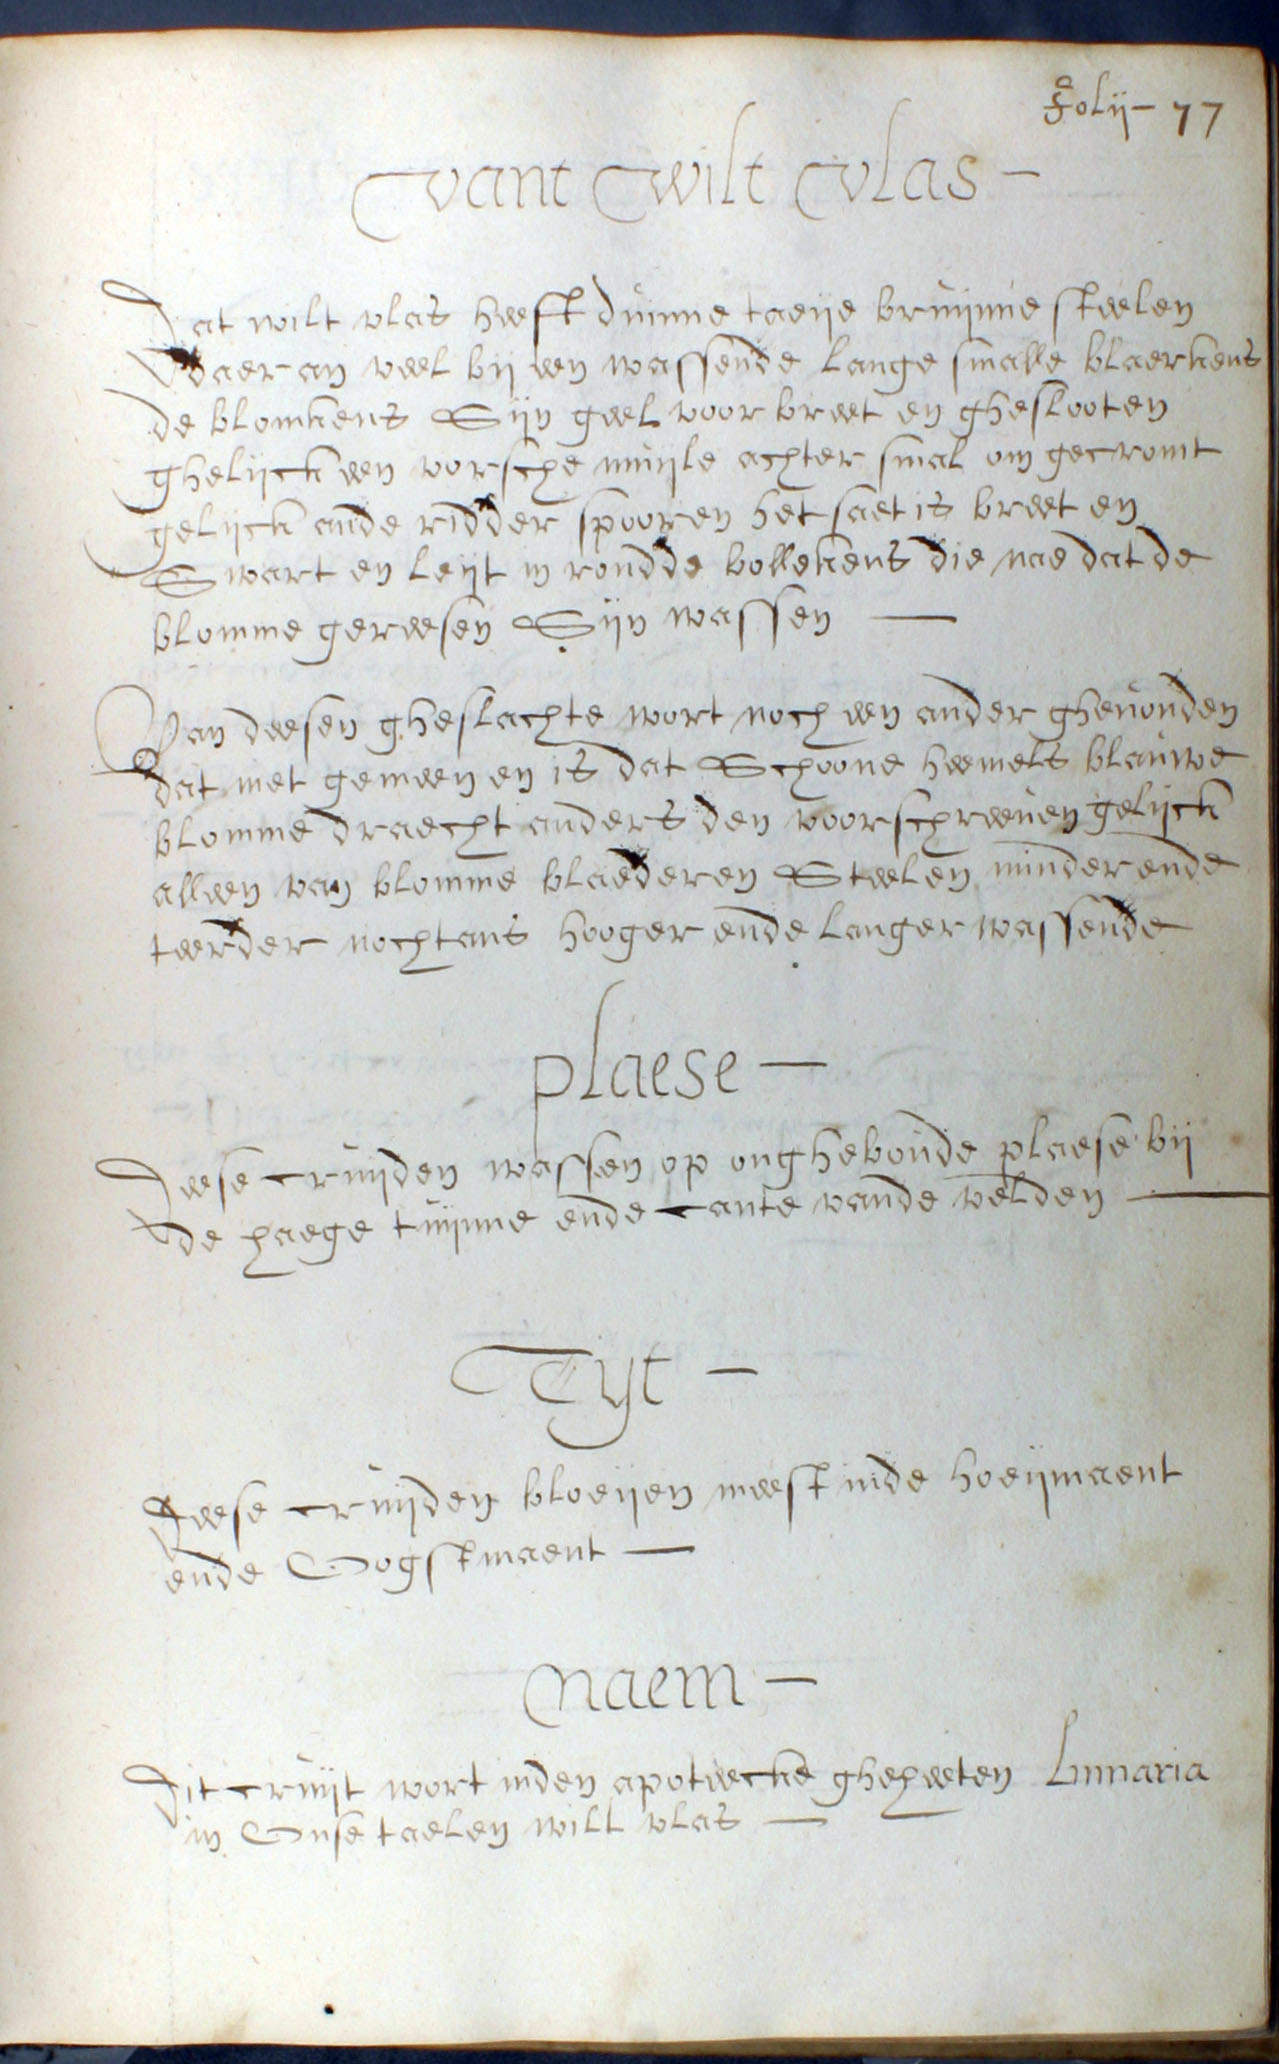 Folij - 77
Vant Wilt Vlas -
Dat wilt vlas heeft dunne taeije bruijnne steelen
daer an veel bij een wassende lange smalle blaerkens
de blomkens Sijn geel voor breet en ghesloten
ghelijck een vorsche muijle achter smal om gecromt
gelijck ande ridder spooren het saet is breet en
Swart en leijt in rondde bollekens die nae dat de
blomme geweesen Sijn wassen —
Van deesen gheslachte wort noch een ander gheuonden
dat niet gemeen en is dat Schoone heemels blauwe
blomme draecht anders den voorschreeuen gelijck
alleen van blomme blaedderen Steelen minder ende
teerder nochtans hooger ende langer wassende
plaese -
Deese cruijden wassen op ongheboude plaese bij
de haege tuijnne ende cante vande velden —
Tijt -
Deese cruijden bloeijen meest inde hoeijmaent
ende Oogstmaent —
Naem -
Dit cruijt wort inden apoteecke gheheeten Linnaria
in Onse taelen wilt vlas —